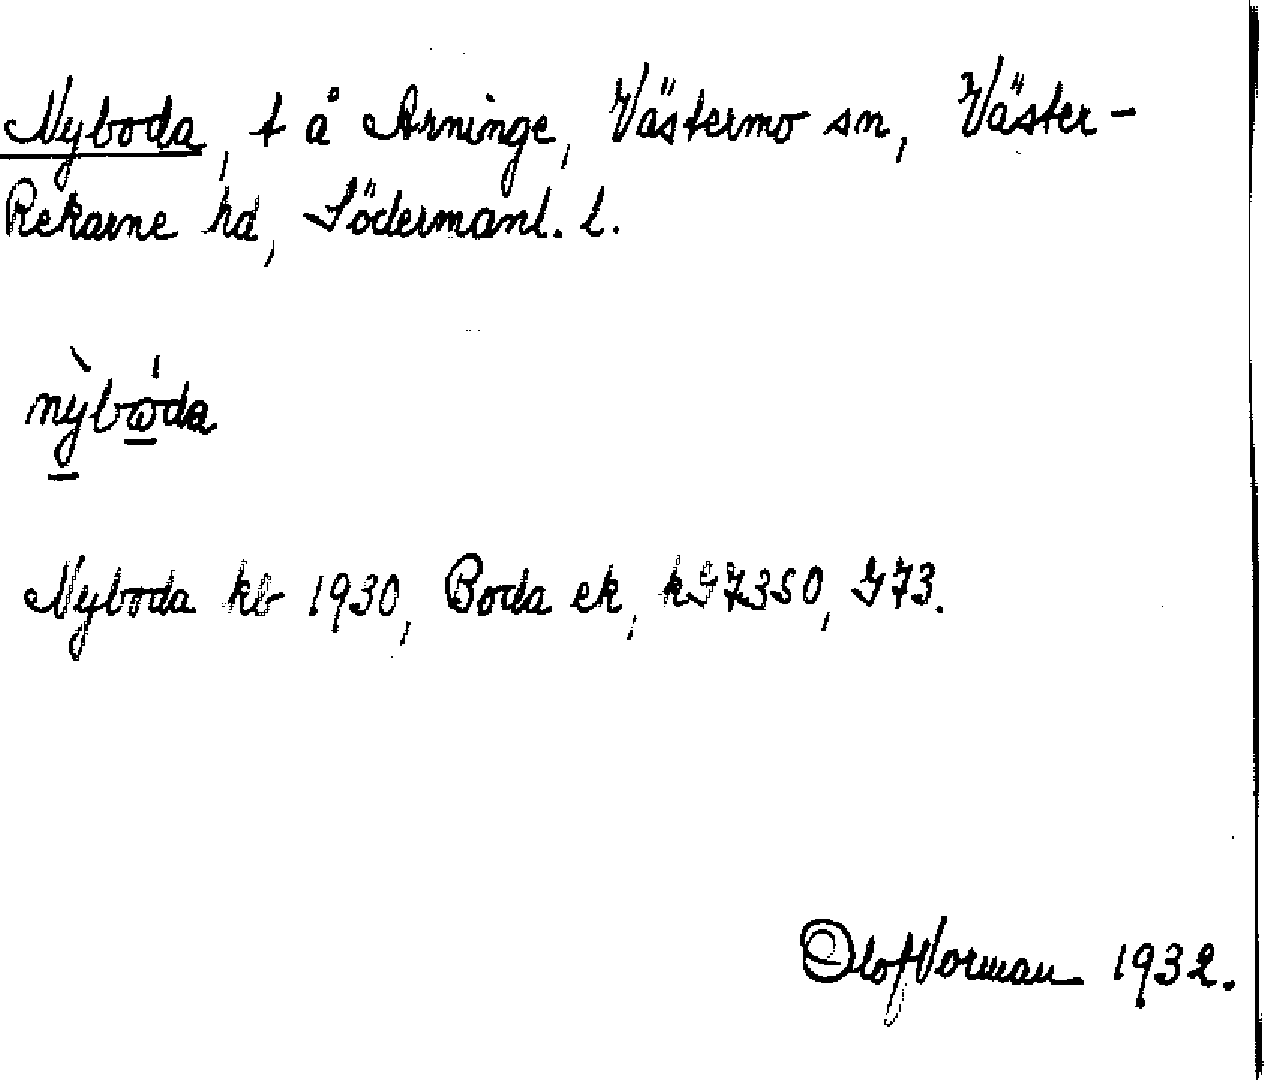 Nyboda, t å Arninge, Västermo sn, Väster-
Rekarne hd, Södermanl. l.
nỳbǻda
Nyboda kb 1930, Boda ek, k 350, 73.
Olof Vorman 1932.